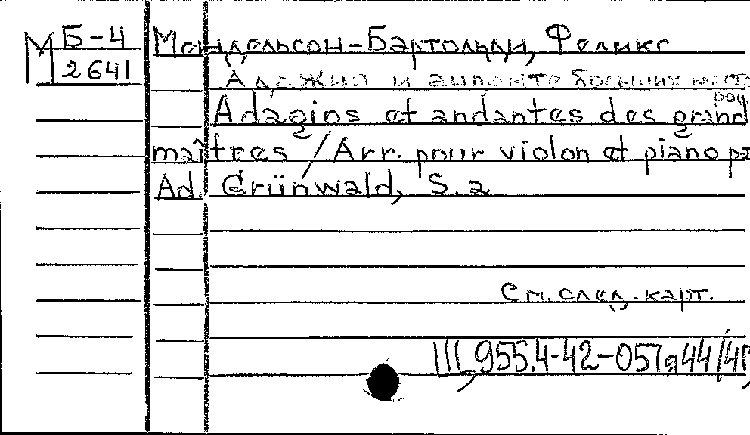 М Б-4
2641
Мендельсон-Бартольди, Феликс
Адажио и анданте больших
Adagios et andantes des grand
maîtres / Arr. pour violon et piano
Ad. Grünwald, S. a
См. след. карт.